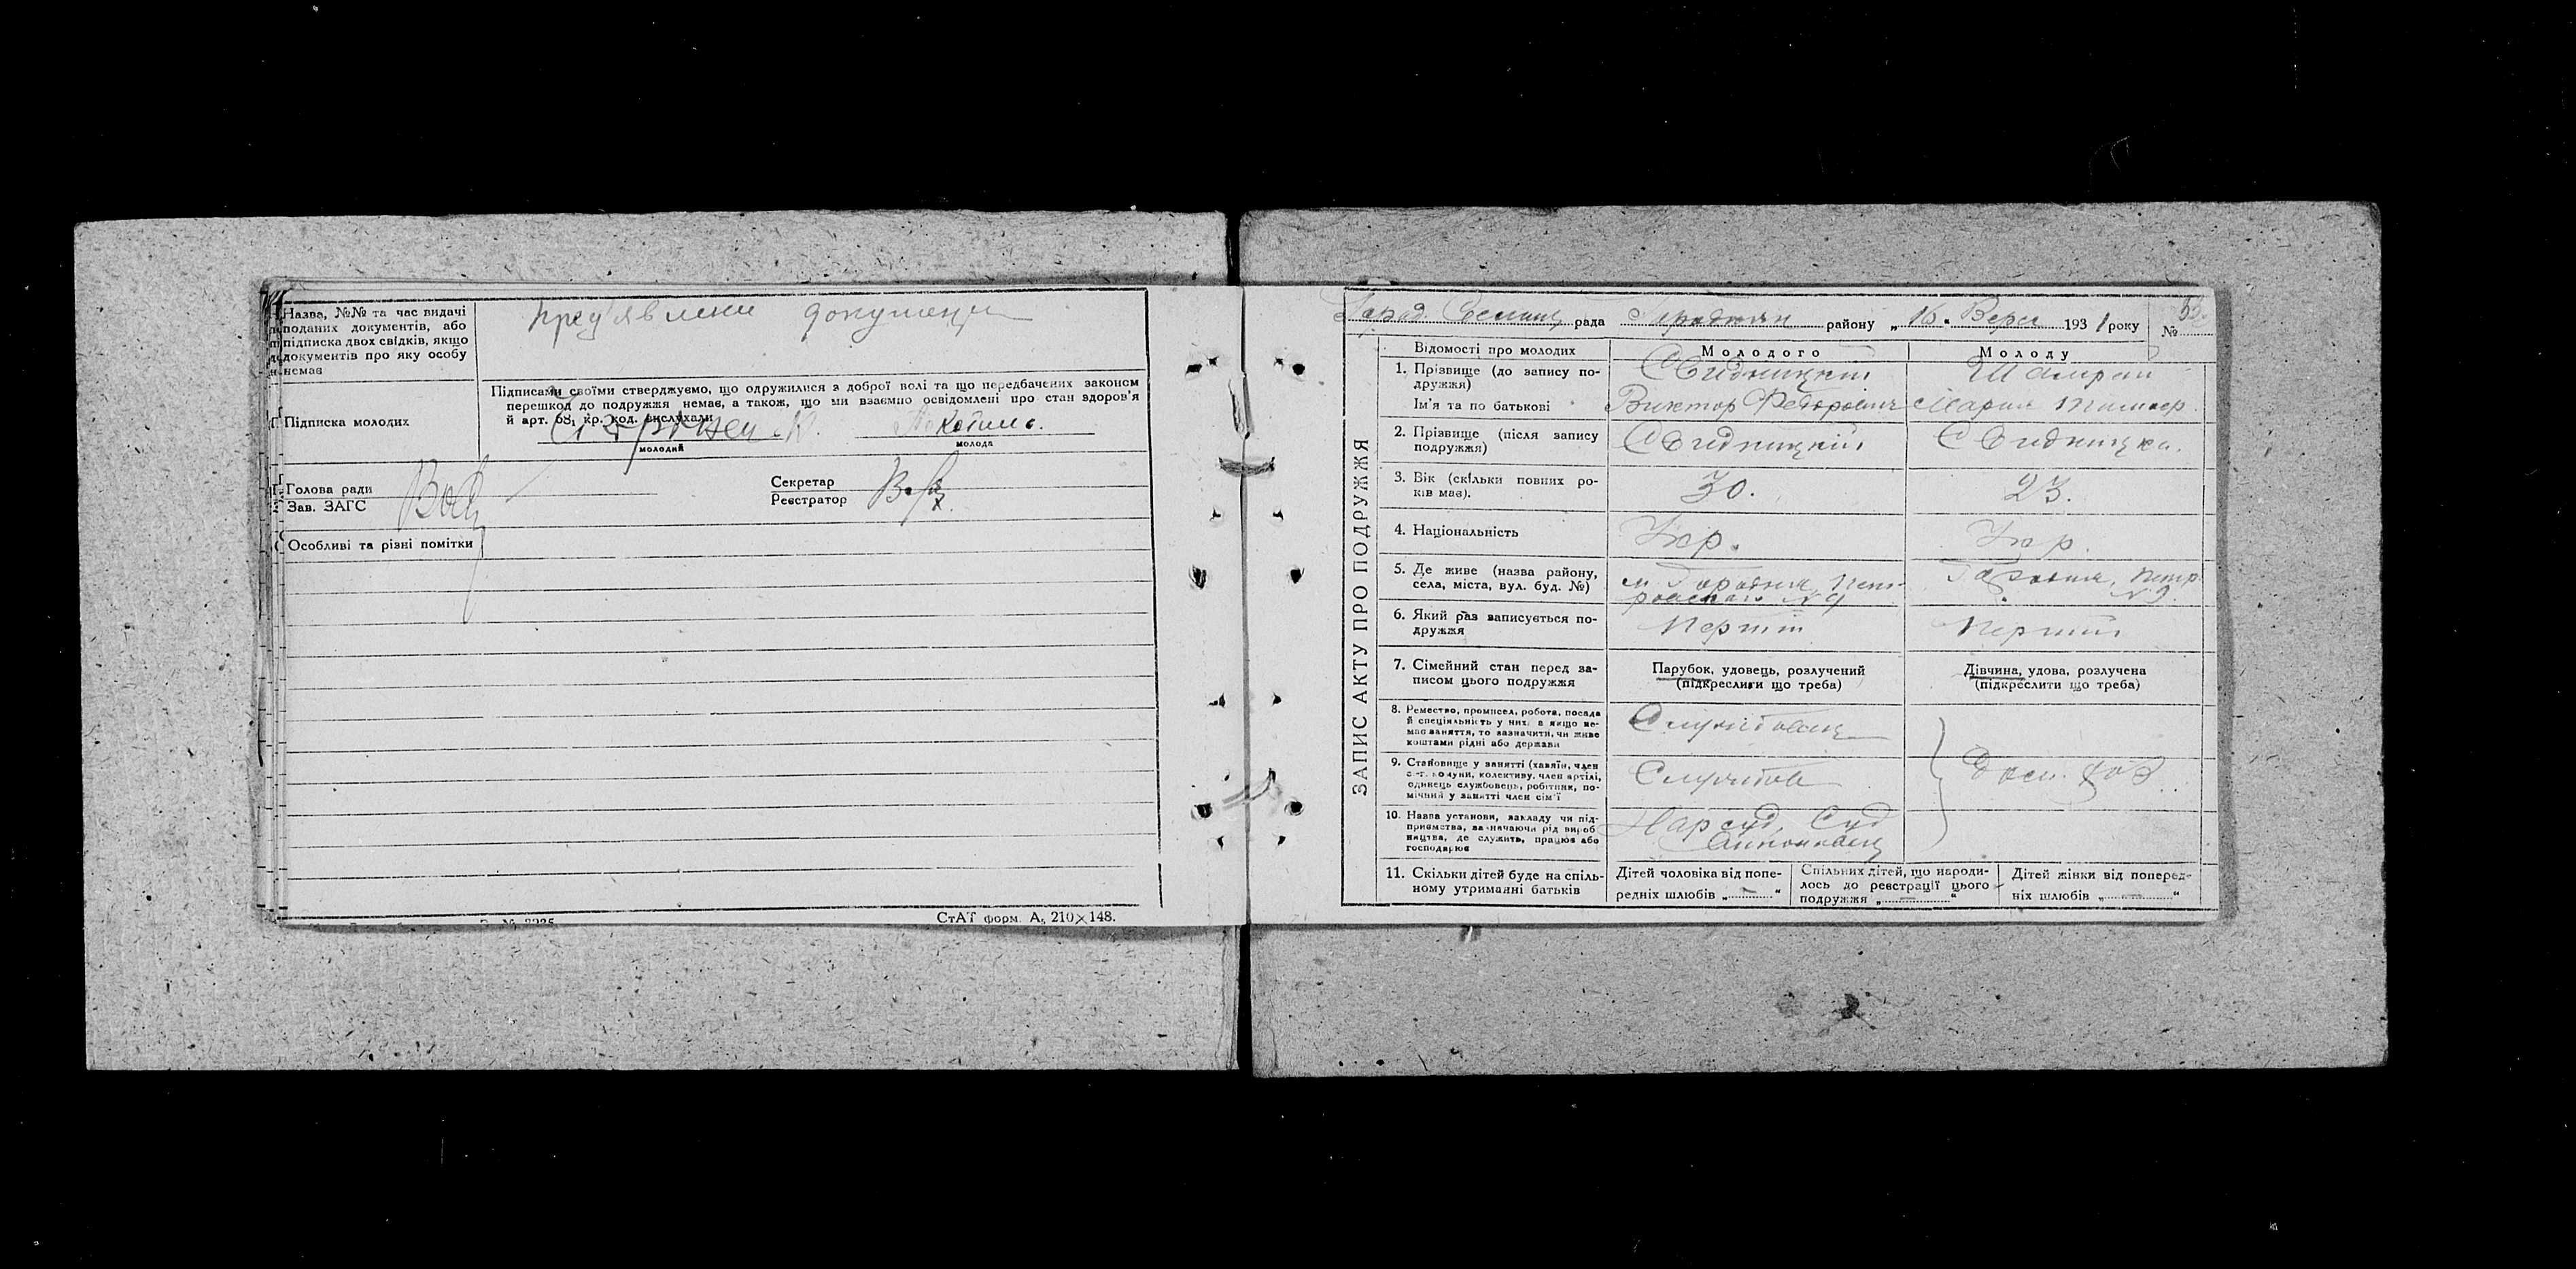 Назва, №№ та час видачі
поданих документів, або
підписка двох свідків, якщо
документів про яку особу
немає
пред'явлени документи
Підписами своїми стверджуємо, що одружилися з доброї волі та що передбачених законом
перешкод до подружжя немає, а також, що ми взаємно освідомлені про стан здоров'я
й арт. 68, кр. код. вислухали
Підписка молодих
молодий
молода
Голова ради
Зав. ЗАГС
Секретар
Реєстратор
Особливі та різні помітки
СтАТ форм. А₅ 210×148.
ЗАПИС АКТУ ПРО ПОДРУЖЖЯ
Город. Селищ рада Городнян району „ Верес 1931 року №
Відомості про молодих Молодого Молоду
1. Прізвище (до запису по-
дружжя)
Свидницкий Шамрай
Ім'я та по батькові Виктор Федорович Мария
2. Прізвище (після запису
подружжя)
Свидницкий Свидницка.
3. Вік (скільки повних ро-
ків має).
30. 23.
4. Національність Укр. Укр.
5. Де живе (назва району,
села, міста, вул. буд. №)
м. Городня, Пет-
ровского N 9
Городня, Петр.
N 9.
6. Який раз записується по-
дружжя
Перший Перший
7. Сімейний стан перед за-
писом цього подружжя
Парубок, удовець, розлучений
(підкреслити що треба)
Дівчина, удова, розлучена
(підкреслити що треба)
8. Ремество, промисел, робота, посада
й спеціяльність у них, а якщо не-
має заняття, то зазначити, чи живе
коштами рідні або держави
Службовець
9. Становище у занятті (хазяїн, член
с.-г. комуни, колективу, член артілі,
одинець службовець, робітник, по-
мічний у занятті член сім'ї
Службов
Дом. хоз.
10. Назва установи, закладу чи під-
приємства, зазначаючи рід вироб
ництва, де служить, працює або
господарює
Нарсуд, Суд
11. Скільки дітей буде на спіль-
ному утриманні батьків
Дітей чоловіка від попе-
редніх шлюбів „ — “
Спільних дітей, що народи-
лось до реєстрації цього
подружжя „ — “
Дітей жінки від поперед-
ніх шлюбів „ — “